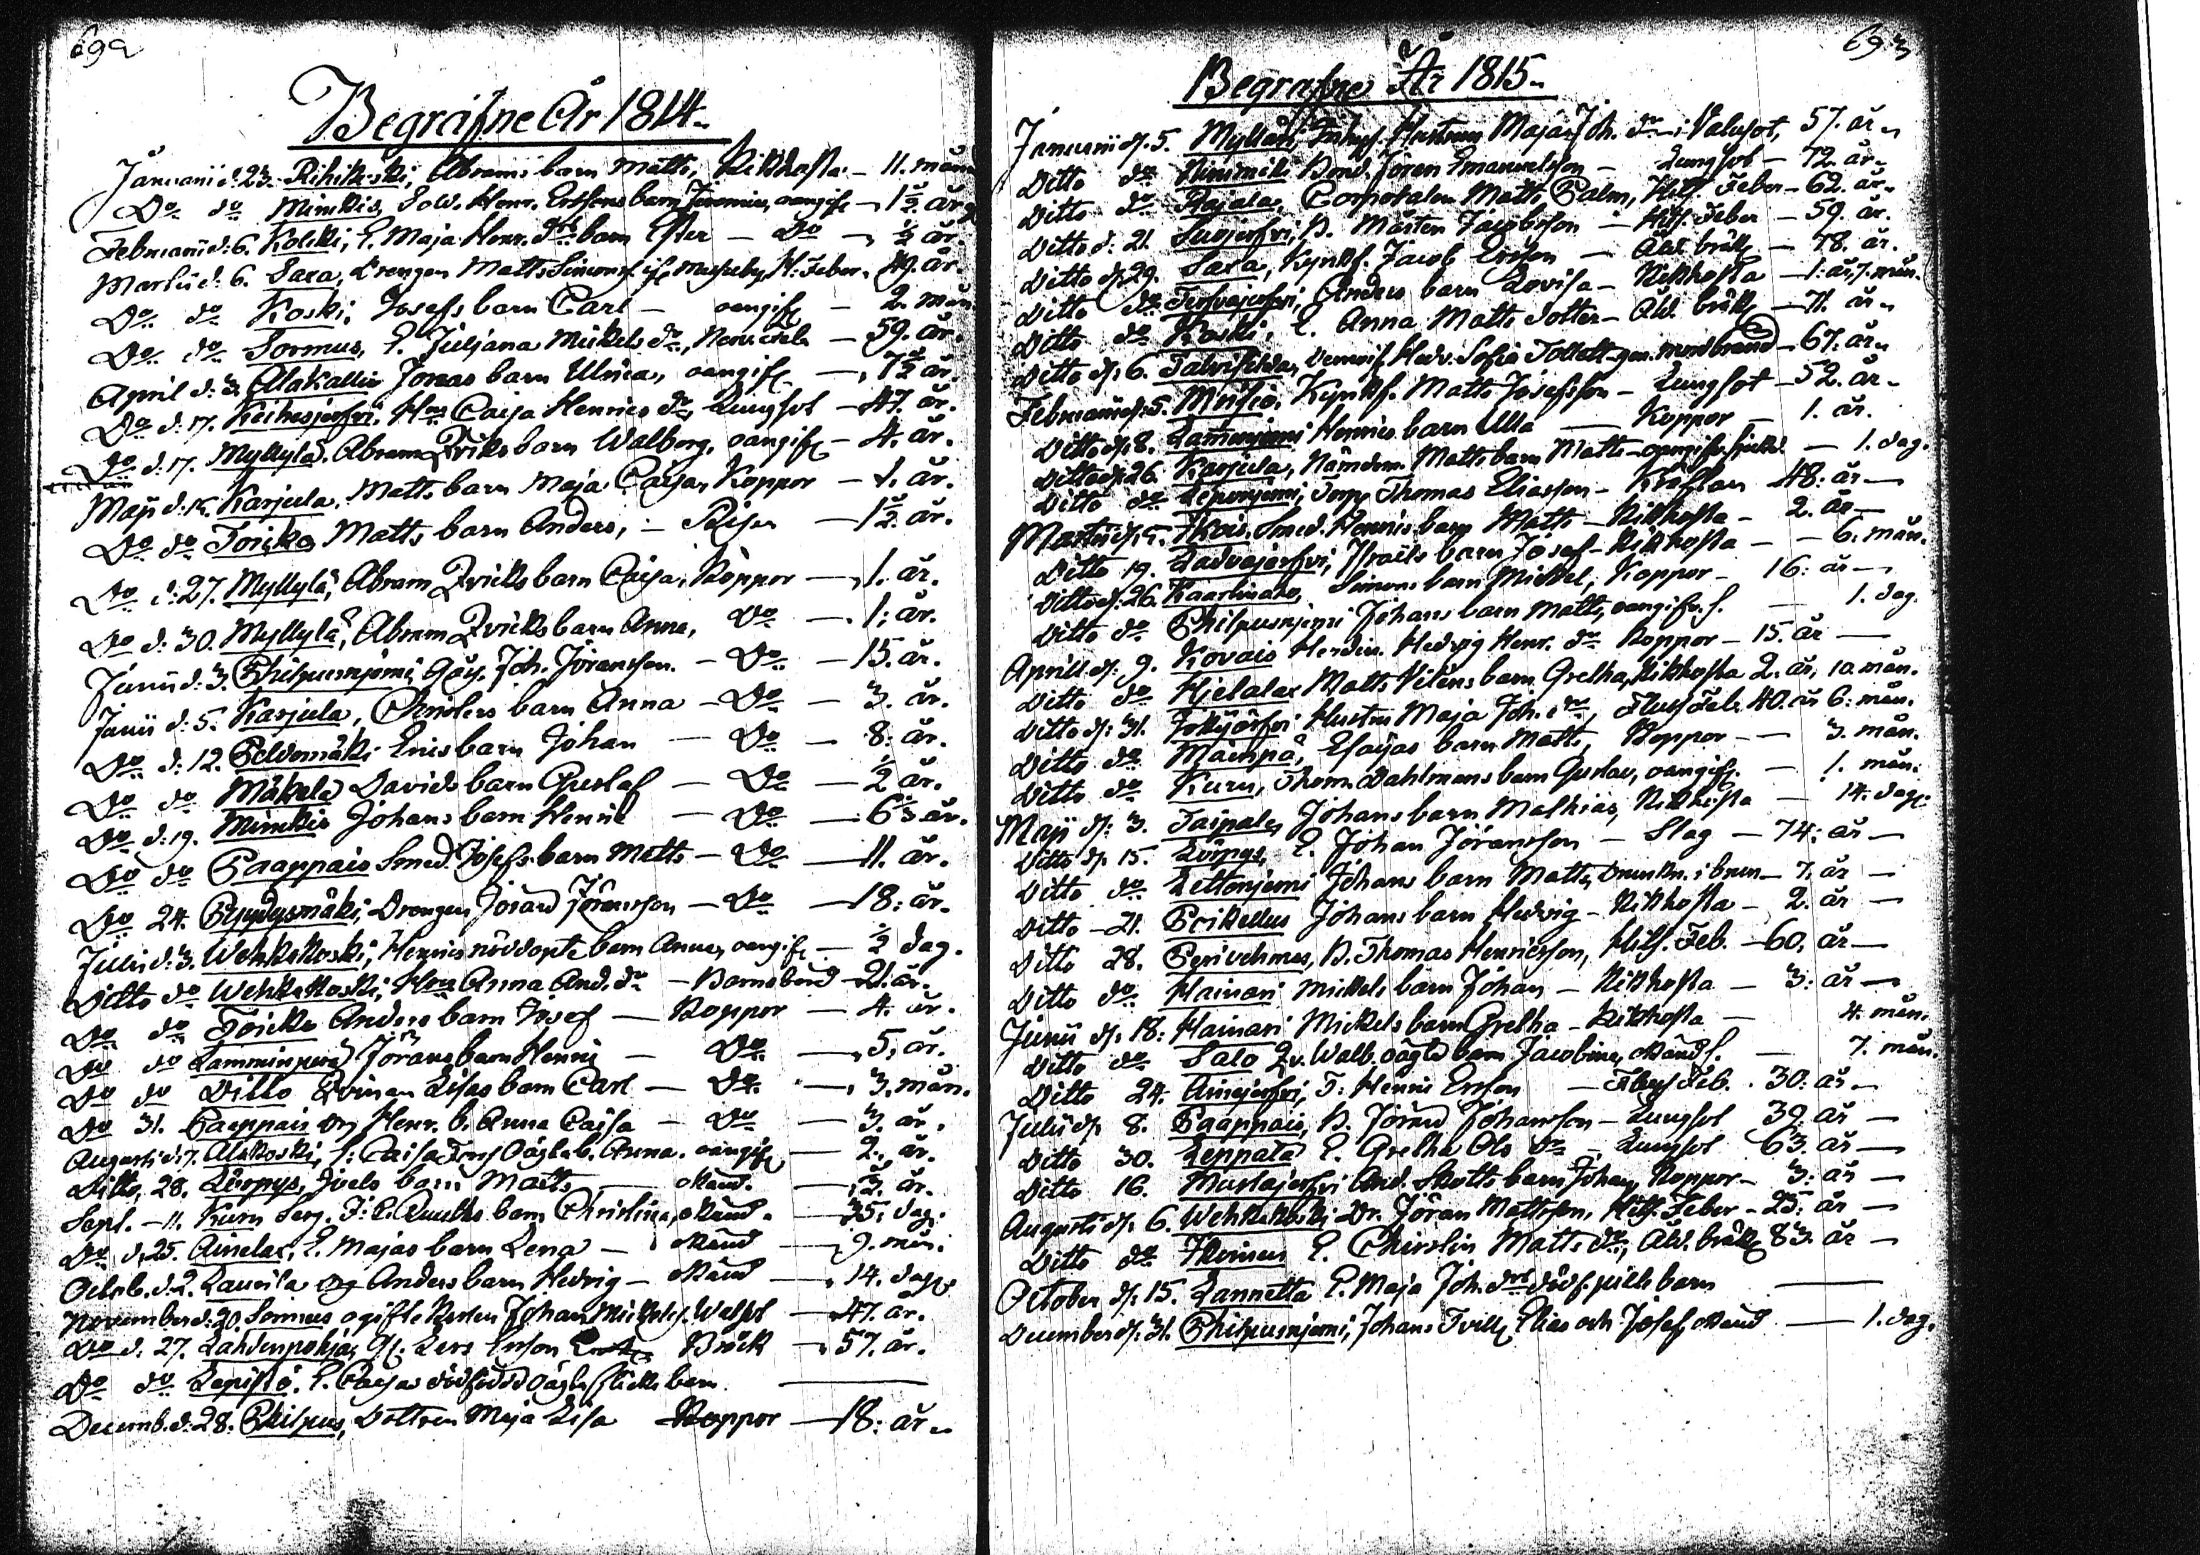 692
Begrafne År 1814.
Januarii d: 23. Rihikoski, Abrams barn Matts, Kikhosta - 11. mån
Do do Minkis, Sold. Henr. Erssons barn Jeremias, oangif. - 1 1/2 år
Februarii d: 6. Kolkki, E. Maja Henr. drs barn Ester - Do - 1/2 år.
Martii d: 6. Saxa, Drengen Matts Simons. H: Feber. 49. år.
Do do Koski, Josefs barn Carl - oangif. - 2. mån
Do do Sormus, E. Juljana Mickels dr, - 59. år.
April d: 3. Alakallio Jonas barn Ulrica, oangif. - 1 1/2 år.
Do d: 17. Keihesjerfvi, Hu Caisa Henrics dr, Lungsot - 47. år.
Do d: 17. Myllylä, Abram Qvicks barn Walborg, oangif. - 4. år.
Maji d: 15. Karjula, Matts barn Maja Caisa, Koppor - 1. år.
Do do Torikka Matts barn Anders, - Risen - 1 1/2 år.
Do d: 27. Myllylä, Abram Qvicks barn Caisa, Koppor - 1. år.
Do d: 30. Myllylä, Abram Qvicks barn Anna, Do - 1. år.
Junii d: 3. Philpusnjemi, Joh. Jöransson. - Do - 15. år.
Junii d: 5. Karjula, Anders barn Anna - Do - 3. år.
Do d: 12. Peldomäki Erics barn Johan - Do - 8: år.
Do do Mäkelä Davids barn Gustaf - Do - 1/2 år.
Do d: 19. Minkis Johans barn Henric - Do - år.
Do do Paappais Smed. Josefs barn Matts - Do - 11. år.
Do 24. Pyydysmäki, Drengen Jöran Jöransson - Do - 18: år.
Julii d: 3. Wehkakoski, Henrics nöddopte barn Anna, oangif. - 1/2 dag.
Ditto do Wehkakoski, Hu Anna And. dr - Barnsbörd - 21. år.
Do do Torikka Anders barn Josef - Koppor - 4. år.
Do do Lamminperä, Jörans barn Henric - Do - 5. år.
Do do Ditto Qvinan Lisas barn Carl - Do - 3. mån.
Do 31. Paappais Henr. b. Anna Caisa - Do - 3. år.
Augusti d: 7. Alakoski, oägta b. Anna. oangif. - 2. år.
Ditto, 28. Löpys, Joels barn Matts - okänd. - 3. år.
Sept. - 11. Kuru Serg. barn Christina, okänd. - 35. dag.
Do d. 25. Ainelax, E. Majas barn Lena - okänd - 9. mån.
Octob. d. 2. Laurila Anders barn Hedvig - okänd - 14. dag
November d: 20. Sormus ogifte Karlen Johan Mickels. - 47. år.
Do d. 27. Lahdenpohja, Lars Ersson Bråck - 57. år.
Do do Lepistö, E. Caijsas dödfödd oägta flicke barn
Decemb. d. 28. Philpus, Dottren Maja Lisa Koppor - 18: år.
693
Begrafne År 1815.
Januarii d. 5. Myllari, Hustrun Maja Joh. dr - 57. år.
Ditto do Niinimäki Bond. Jöran Emanuelsson - Lungsot - 72. år.
Ditto do Rajala, Corporalen Matts Palm, Hits. Feber - 62. år.
Ditto d: 21. B. Mårten Jacobsson - Hits. Feber - 59. år.
Ditto d. 29. Saxa, Kyrkf. Jacob Ersson - Åld. bräckl. - 78. år.
Ditto do Anders barn Lovisa - Kikhosta - 1: år, 7. mån.
Ditto do Koski, E. Anna Matts dotter - Åld. bräckl. - 71. år.
Ditto d. 6. Talvisilda, Demois. Hedv. Sofia - 67. år.
Februarii d. 5. Kyrkf. Matts Josefsson - Lungsot - 52. år.
Ditto d. 8. Lamminjemi Henrics barn Ulla - Koppor - 1. år.
Ditto d. 26. Karjula, Nämdem. Matts barn Matts - - 1. dag.
Ditto do Leponjemi, Torp. Thomas Eliasson - Kräftan 48: år -
Martii d. 5. Smed. Henrics barn Matts - Kikhosta - 2. år -
Ditto 19. Ladvajerfvi, Israels barn Josef - Kikhosta - - 6. mån.
Ditto d. 26. Simons barn Mickel, Koppor - 16: år -
Ditto do Philpusnjemi Johans barn Matts, oangifv. s. - 1. dag.
Aprill d. 9. Kovais Hedvig Henr. dr Koppor - 15. år -
Ditto do Hjelalax Matts barn Gretha, Kikhosta 2. år, 10. mån.
Ditto d: 31. Jokijerfvi Hustru Maja Joh. dr, Fluss Feb. 40. år 6. mån.
Ditto do Mäenpä, Esaijas barn Matts, Koppor - - 3. mån.
Ditto do Kuru, Thom. Dahlmans barn Gustav, oangif. - 1. mån.
Maji d: 3. Taipale, Johans barn Mathias, Kikhosta - 14. dag.
Ditto d. 15. Löpys, E. Johan Jöransson - Slag - 74: år -
Ditto do Lettonjemi Johans barn Matts, Drunkn. i brun - 7. år -
Ditto - 21. Prikellus Johans barn Hedvig - Kikhosta - 2. år -
Ditto 28. Perivehmas, B. Thomas Henricsson, Hits. Feb. - 60. år -
Ditto do Hainari Mickels barn Johan - Kikhosta - 3: år -
Junii d. 18: Hainari Mickels barn Gretha - Kikhosta - 4. mån.
Ditto do Salo Qv. Walb. oägta barn Jacobina, okänd s. - 7. mån.
Ditto 24. Ainejerfvi, T: Henric Ersson - Fluss Feb. 30: år -
Julii d. 8. Paappais, B. Jöran Johansson - Lungsot 39. år -
Ditto 30. Leppälä E. Gretha Ols dr - Lungsot 63. år -
Ditto 16. Mustajerfvi And. Skotts barn Johan, Koppor - 3: år -
Augusti d. 6. Wehkakoski Dr. Jöran Mattsson, Hits. Feber - 25: år -
Ditto do E. Christin Matts dr, Åld. bräckl. 83. år -
October d: 15. Lannetta E. Maja Joh. drs dödf. barn
December d. 31. Philpusnjemi, Johans Tvill. Elias och Josef, okänd - 1. dag.